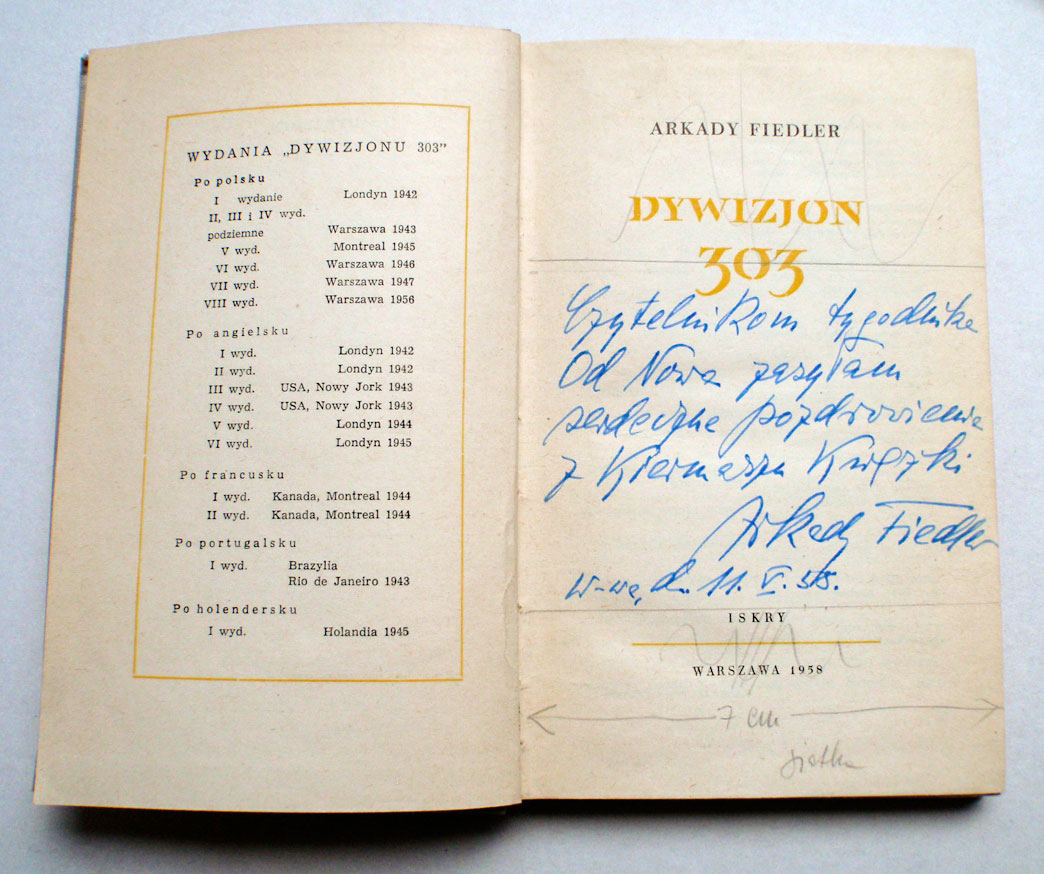 WYDANIA „DYWIZJONU 303”
Po polsku
I wydanie Londyn 1942
II, III i IV wyd.
podziemne Warszawa 1943
V wyd. Montreal 1945
VI wyd. Warszawa 1946
VII wyd. Warszawa 1947
VIII wyd. Warszawa 1956
Po angielsku
I wyd. Londyn 1942
II wyd. Londyn 1942
III wyd. USA, Nowy Jork 1943
IV wyd. USA, Nowy Jork 1943
V wyd. Londyn 1944
VI wyd. Londyn 1945
Po francusku
I wyd. Kanada, Montreal 1944
II wyd. Kanada, Montreal 1944
Po portugalsku
I wyd. Brazylia
Rio de Janeiro 1943
Po holendersku
I wyd. Holandia 1945
ARKADY FIEDLER
DYWIZJON
303
Czytelnikom tygodnika
Od Nowa zasyłam
serdeczne pozdrowienia
z Kiermaszu Książki
Arkady Fiedler
W-wa, d. 11. V. 58.
ISKRY
WARSZAWA 1958
7 cm
siatka